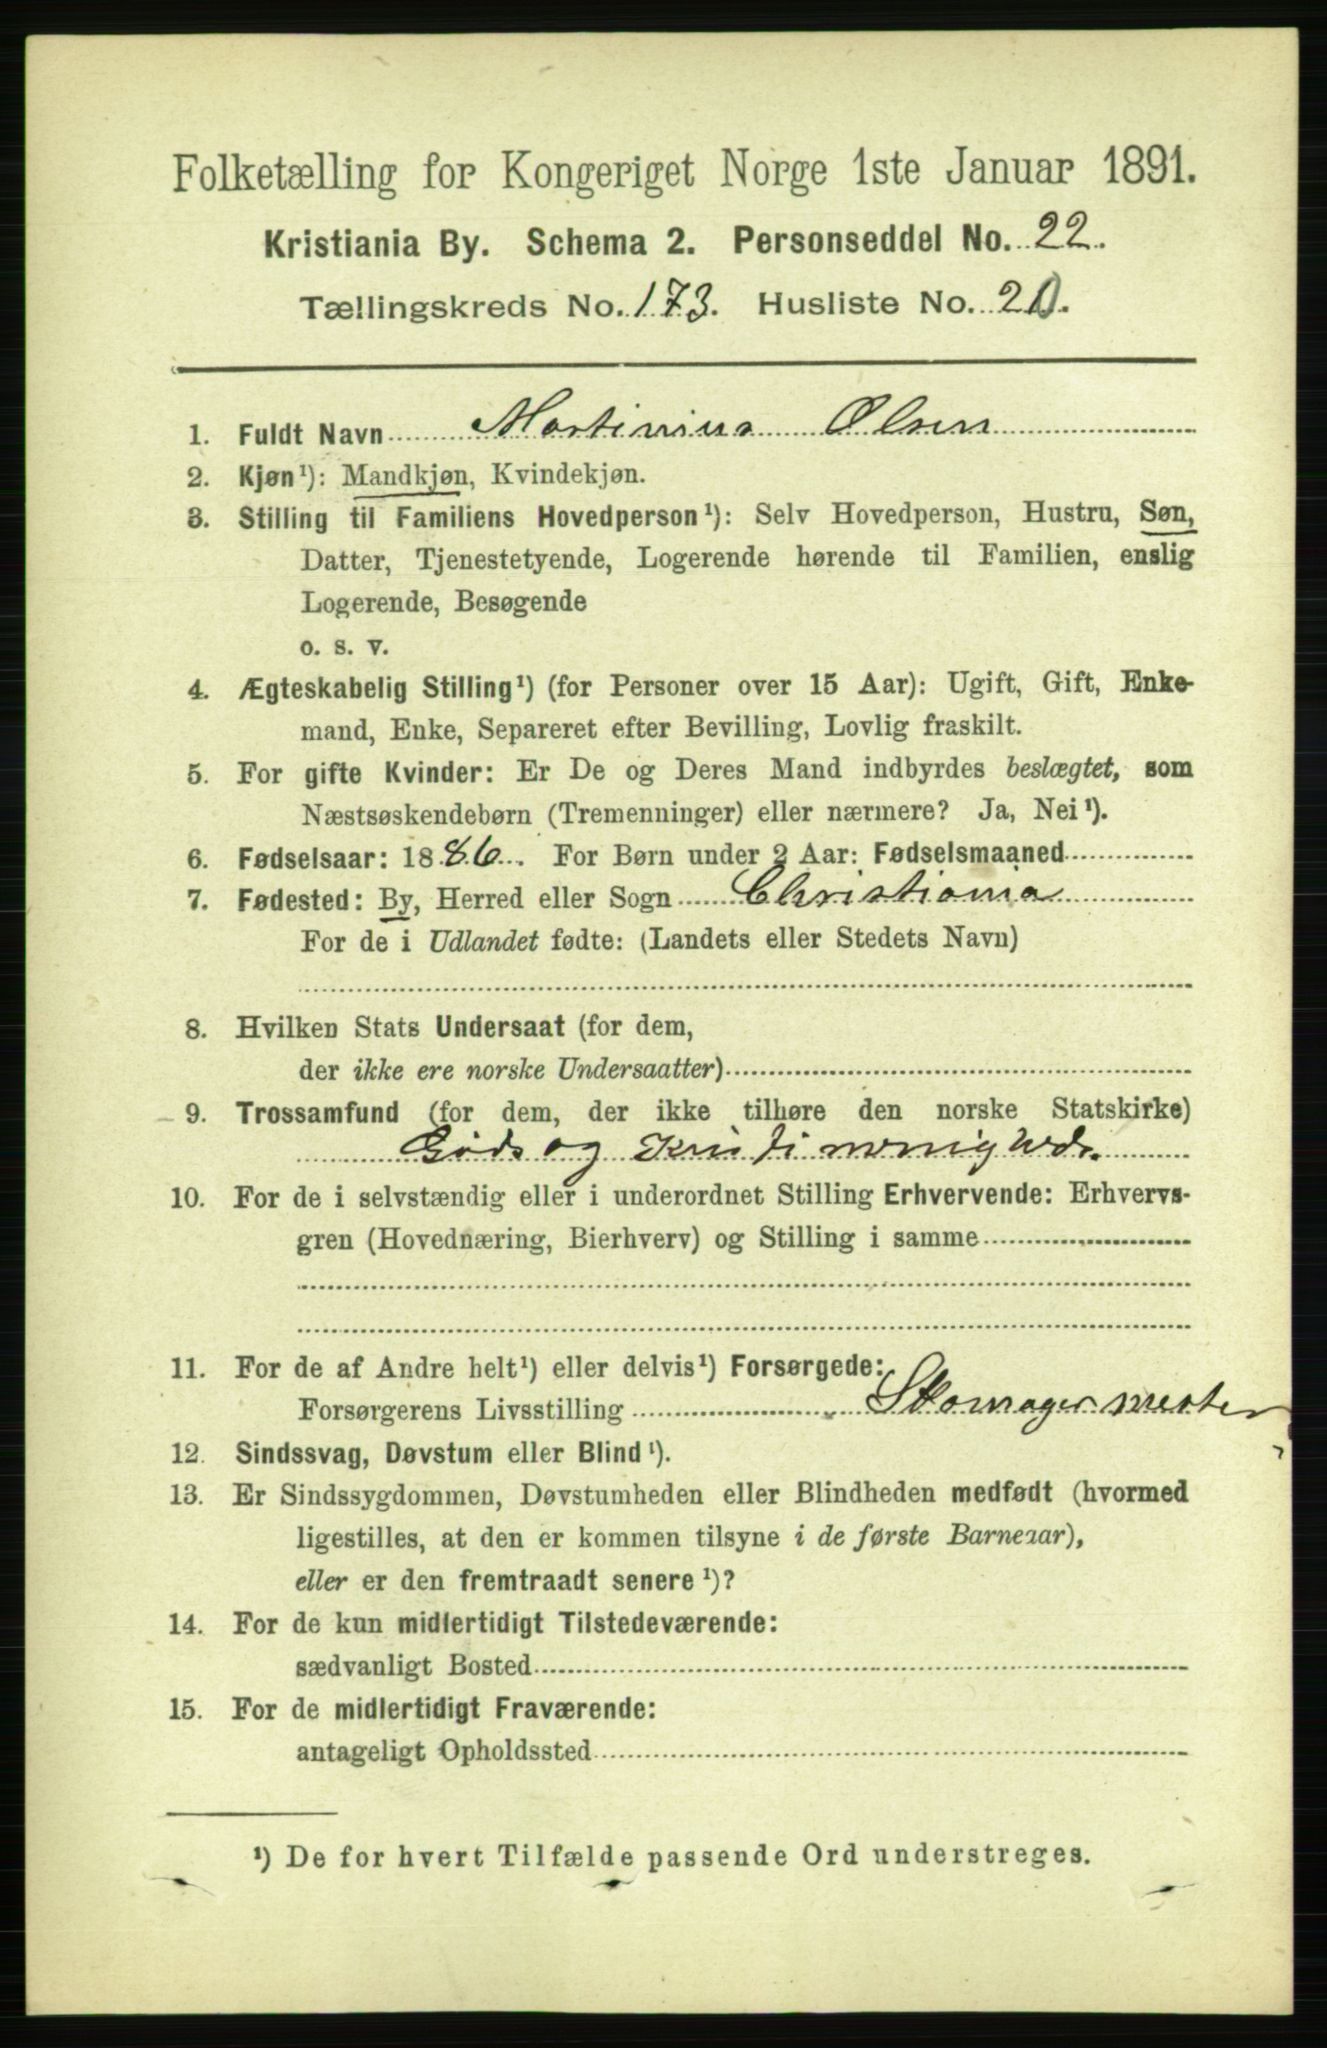 Folketælling for Kongeriget Norge 1ste Januar 1891.
Kristiania By. Schema 2. Personseddel No. 22.
Tællingskreds No. 173. Husliste No. 20.
1. Fuldt Navn Martinius Olsen
2. Kjøn¹): Mandkjøn, Kvindekjøn.
3. Stilling til Familiens Hovedperson¹): Selv Hovedperson, Hustru, Søn,
Datter, Tjenestetyende, Logerende hørende til Familien, enslig
Logerende, Besøgende
o. s. v.
4. Ægteskabelig Stilling¹) (for Personer over 15 Aar): Ugift, Gift, Enke-
mand, Enke, Separeret efter Bevilling, Lovlig fraskilt.
5. For gifte Kvinder: Er De og Deres Mand indbyrdes beslægtet, som
Næstsøskendebørn (Tremenninger) eller nærmere? Ja, Nei¹).
6. Fødselsaar: 1886. For Børn under 2 Aar: Fødselsmaaned
7. Fødested: By, Herred eller Sogn Christiania
For de i Udlandet fødte: (Landets eller Stedets Navn)
8. Hvilken Stats Undersaat (for dem,
der ikke ere norske Undersaatter)
9. Trossamfund (for dem, der ikke tilhøre den norske Statskirke)
og
10. For de i selvstændig eller i underordnet Stilling Erhvervende: Erhvervs-
gren (Hovednæring, Bierhverv) og Stilling i samme
11. For de af Andre helt¹) eller delvis¹) Forsørgede:
Forsørgerens Livsstilling Skomagermester
12. Sindssvag, Døvstum eller Blind¹).
13. Er Sindssygdommen, Døvstumheden eller Blindheden medfødt (hvormed
ligestilles, at den er kommen tilsyne i de første Barneaar),
eller er den fremtraadt senere¹)?
14. For de kun midlertidigt Tilstedeværende:
sædvanligt Bosted
15. For de midlertidigt Fraværende:
antageligt Opholdssted
¹) De for hvert Tilfælde passende Ord understreges.